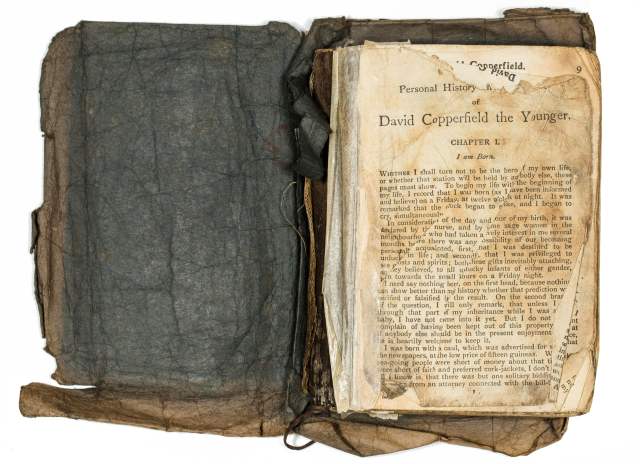 Copperfield.
9
Personal History
of
David Copperfield the Younger.
CHAPTER I.
I am Born.
WHETHER I shall turn out to be the hero of my own life,
or whether that station will be held by anybody else, these
pages must show. To begin my life with the beginning of
my life, I record that I was born (as I have been informed
and believe) on a Friday, at twelve o'clock at night. It was
remarked that the clock began to strike, and I began to
cry, simultaneously.
In consideration of the day and hour of my birth, it was
declared by the nurse, and by some sage women in the
neighbourhood who had taken a lively interest in me several
months before there was any possibility of our becoming
personally acquainted, first, that I was destined to be
unlucky in life; and secondly, that I was privileged to
see ghosts and spirits; both these gifts inevitably attaching,
as they believed, to all unlucky infants of either gender,
born towards the small hours on a Friday night.
I need say nothing here, on the first head, because nothing
can show better than my history whether that prediction was
verified or falsified by the result. On the second branch
of the question, I will only remark, that unless I ran
through that part of my inheritance while I was still a
baby, I have not come into it yet. But I do not at all
complain of having been kept out of this property; and
if anybody else should be in the present enjoyment of it,
he is heartily welcome to keep it.
I was born with a caul, which was advertised for sale, in
the newspapers, at the low price of fifteen guineas. Whether
sea-going people were short of money about that time, or
were short of faith and preferred cork-jackets, I don't know;
all I know is, that there was but one solitary bidding, and
that was from an attorney connected with the bill-broking